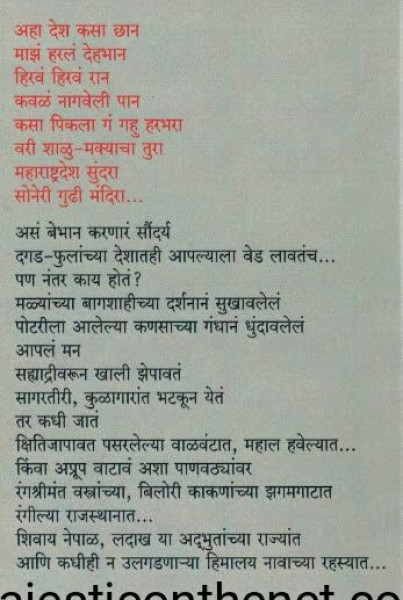 अहा देश कसा छान
माझं हरलं देहभान
हिरवं हिरवं रान
कवळं नागवेली पान
कसा पिकला गं गहु हरभरा
वरी शाळु-मक्याचा तुरा
महाराष्ट्रदेश सुंदरा
सोनेरी गुढी मंदिरा...
असं बेभान करणारं सौंदर्य
दगड-फुलांच्या देशातही आपल्याला वेड लावतंच...
पण नंतर काय होतं?
मळ्यांच्या बागशाहीच्या दर्शनानं सुखावलेलं
पोटरीला आलेल्या कणसाच्या गंधानं धुंदावलेलं
आपलं मन
सह्याद्रीवरून खाली झेपावतं
सागरतीरी, कुळागारांत भटकून येतं
तर कधी जातं
क्षितिजापावत पसरलेल्या वाळवंटात, महाल हवेल्यात...
किंवा अप्रूप वाटावं अशा पाणवठ्यांवर
रंगश्रीमंत वस्त्रांच्या, बिलोरी काकणांच्या झगमगाटात
रंगील्या राजस्थानात...
शिवाय नेपाळ, लदाख या अद्‌भुतांच्या राज्यांत
आणि कधीही न उलगडणाऱ्या हिमालय नावाच्या रहस्यात...